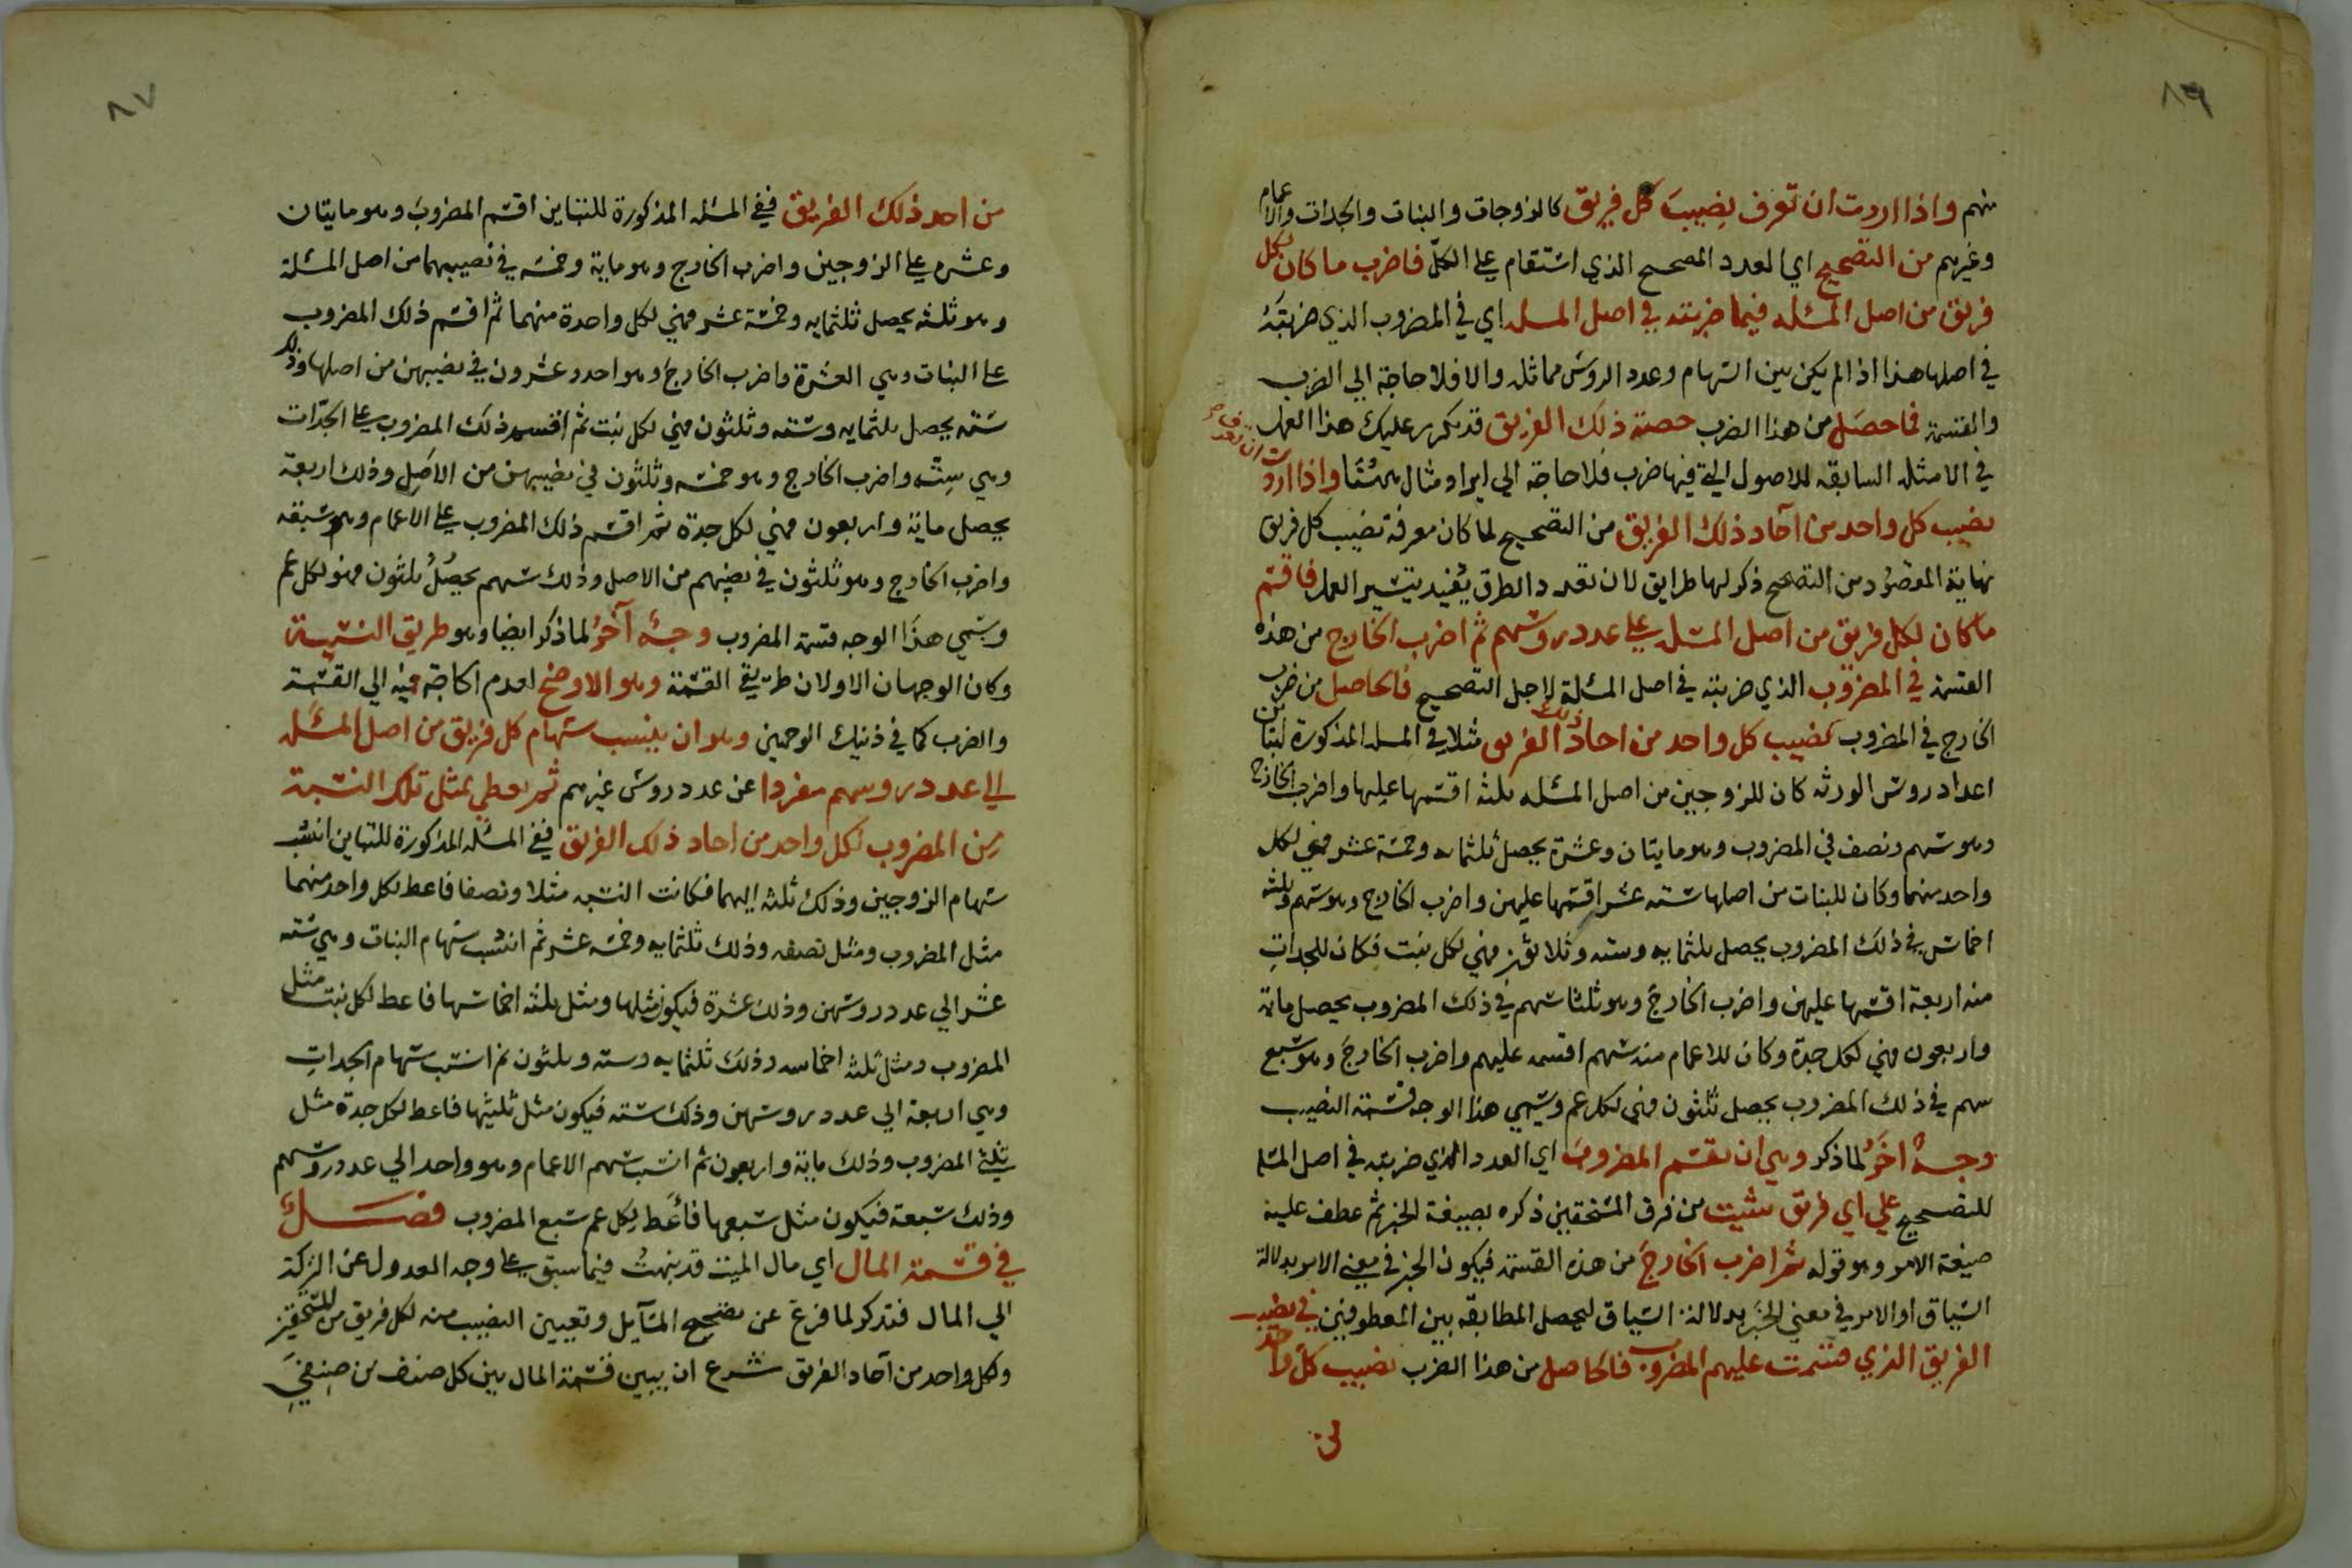 ٨٩
منهم واذا اردت ان تعرف نصيب كل فريق كالزوجات والبنات والجدات والاعمام
وغيرهم من التصحيح اي العدد المصحح الذي استقام على الكل فاضرب ما كان لكل
فريق من اصل المسئله فيما ضربته في اصل المسله اي في المضروب الذي ضربته
في اصلها هذا اذا لم يكن بين السهام وعدد الروس مماثله والا فلا حاجة الى الضرب
والقسمة فما حصل من هذا الضرب حصة ذلك الفريق قد تكرر عليك هذا العمل
في الامثله السابقه للاصول التي فيها ضرب فلا حاجة الي ايراد مثال هنا واذا اردت ان تعرف
نصيب كل واحد من آحاد ذلك الفريق من التصحيح لما كان معرفة نصيب كل فريق
نهاية المقصود من التصحيح ذكر لها طرايق لان تعدد الطرق يفيد تيسير العمل فاقسم
ما كان لكل فريق من اصل المسئله على عدد روسهم ثم اضرب الخارج من هذه
القسمة في المضروب الذي ضربته في اصل المسئلة لاجل التصحيح فالحاصل من ضرب
الخارج في المضروب نصيب كل واحد من احاد ذلك الفريق مثلا في المسله المذكورة لتباين
اعداد روس الورثه كان للزوجين من اصل المسئله ثلثه اقسمها عليها واضرب الخارج
وهو سهم ونصف في المضروب وهو مايتان وعشرة يحصل ثلثمايه وخمسة عشر فهي لكل
واحد منهما وكان للبنات من اصلها سته عشر اقسمها عليهن واضرب الخارج وهو سهم وثلثه
اخماس في ذلك المضروب يحصل ثلثمايه وسته وثلاثون فهي لكل بنت فكان للجدات
منه اربعة اقسمها عليهن واضرب الخارج وهو ثلثا سهم في ذلك المضروب يحصل ماية
واربعون فهي لكل جدة وكان للاعمام منه سهم اقسمه عليهم واضرب الخارج وهو سبع
سهم في ذلك المضروب يحصل ثلثون فهي لكل عم وسمي هذا الوجه قسمة النصيب
وجه اخر لما ذكر وهي ان تقسم المضروب اي العدد الذي ضربته في اصل المسئلة
للتصحيح علي اي فريق شيت من فرق المستحقين ذكره بصيغة الخبر ثم عطف عليه
صيغة الامر وهو قوله ثم اضرب الخارج من هذه القسمة فيكون الخبر في معنى الامر بدلالة
السياق او الامر في معنى الخبر بدلالة السياق ليحصل المطابقه بين المعطوفين في نصيب
الفريق الذي قسمت عليهم المضروب فالحاصل من هذا الضرب نصيب كل واحد
من
٨٧
من احد ذلك الفريق ففي المسئله المذكورة للتباين اقسم المضروب وهو مايتان
وعشره على الزوجين واضرب الخارج وهو ماية وخمسه في نصيبهما من اصل المسئلة
وهو ثلثه يحصل ثلثمايه وخمسة عشر فهي لكل واحدة منهما ثم اقسم ذلك المضروب
على البنات وهي العشرة واضرب الخارج وهو احد وعشرون في نصيبهن من اصلها وذلك
سته يحصل ثلثمايه وسته وثلثون فهي لكل بنت ثم اقسم ذلك المضروب على الجدات
وهي سته واضرب الخارج وهو خمسه وثلثون في نصيبهن من الاصل وذلك اربعة
يحصل ماية واربعون فهي لكل جدة ثم اقسم ذلك المضروب على الاعمام وهو سبعه
واضرب الخارج وهو ثلثون في نصيبهم من الاصل وذلك سهم يحصل ثلثون فهو لكل عم
وسمي هذا الوجه قسمة المضروب وجه آخر لما ذكر ايضا وهو طريق النسبة
وكان الوجهان الاولان طريقي القسمة وهو الاوضح لعدم الحاجة فيه الي القسمة
والضرب كما في ذينك الوجهين وهو ان ينسب سهام كل فريق من اصل المسئله
الي عدد روسهم مفردا عن عدد روس غيرهم ثم يعطي بمثل تلك النسبة
من المضروب لكل واحد من احاد ذلك الفريق ففي المسئله المذكورة للتباين انسب
سهام الزوجين وذلك ثلثه اليهما فكانت النسبه مثلا ونصفا فاعط لكل واحد منهما
مثل المضروب ومثل نصفه وذلك ثلثمايه وخمسه عشر ثم انسب سهام البنات وهي سته
عشر الي عدد روسهن وذلك عشرة فيكون مثلها ومثل ثلثه اخماسها فاعط لكل بنت مثل
المضروب ومثل ثلثه اخماسه وذلك ثلثمايه وسته وثلثون ثم انسب سهام الجدات
وهي اربعة الي عدد روسهن وذلك سته فيكون مثل ثلثيها فاعط لكل جدة مثل
ثلثي المضروب وذلك ماية واربعون ثم انسب سهم الاعمام وهو واحد الي عدد روسهم
وذلك سبعة فيكون مثل سبعها فأعط لكل عم سبع المضروب فصل
في قسمة المال اي مال الميت قد نبهت فيما سبق على وجه العدول عن التركة
الي المال فتذكر لما فرغ عن تصحيح المسآيل وتعيين النصيب منه لكل فريق من المستحقين
وكل واحد من آحاد الفريق شرع ان يبين قسمة المال بين كل صنف من صنفي